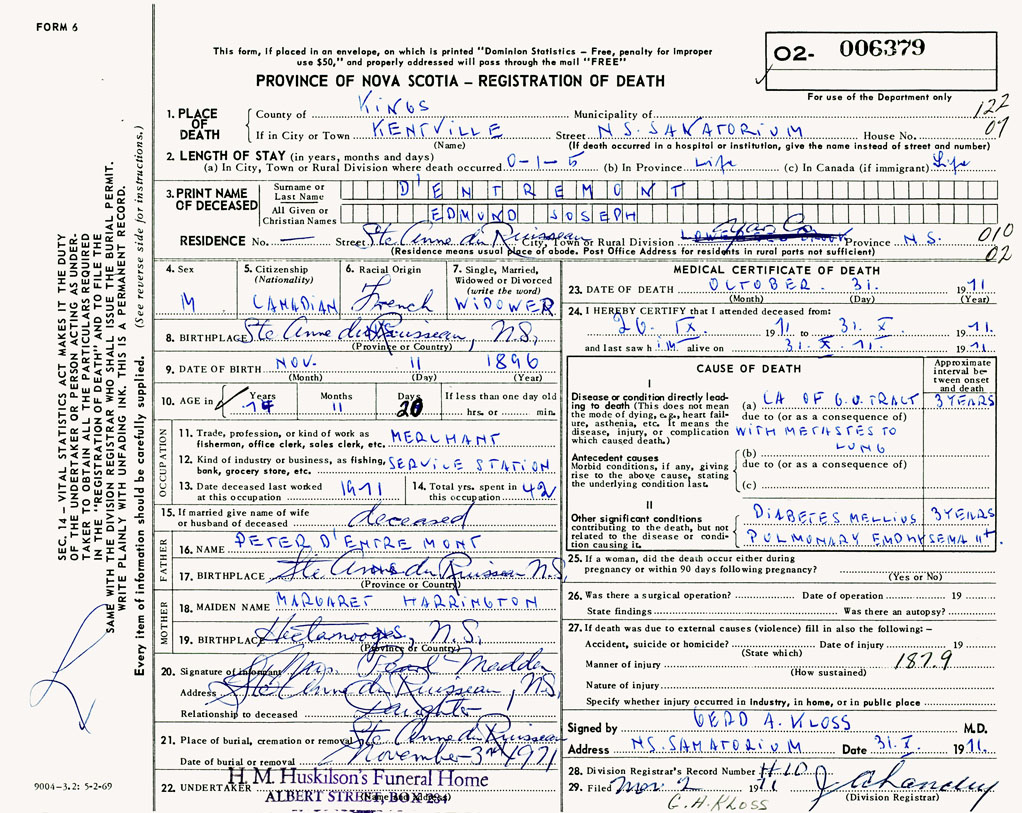 FORM 6
This form, if placed in an envelope, on which is printed "Dominion Statistics – Free, penalty for improper
use $50," and properly addressed will pass through the mail "FREE"
PROVINCE OF NOVA SCOTIA – REGISTRATION OF DEATH
O2- 006379
For use of the Department only
122
07
1. PLACE OF DEATH
County of KINGS Municipality of
If in City or Town KENTVILLE Street N.S. SANATORIUM House No.
(Name) (If death occurred in a hospital or institution, give the name instead of street and number)
2. LENGTH OF STAY (in years, months and days)
(a) In City, Town or Rural Division where death occurred 0-1-5 (b) In Province Life (c) In Canada (if immigrant) Life
3. PRINT NAME OF DECEASED
Surname or Last Name D'ENTREMONT
All Given or Christian Names EDMUND JOSEPH
RESIDENCE No. — Street Ste Anne du Ruisseau City, Town or Rural Division Province N.S.
(Residence means usual place of abode. Post Office Address for residents in rural parts not sufficient)
010
02
4. Sex M
5. Citizenship (Nationality) CANADIAN
6. Racial Origin French
7. Single, Married, Widowed or Divorced (write the word) WIDOWER
8. BIRTHPLACE Ste Anne du Ruisseau, N.S.
(Province or Country)
9. DATE OF BIRTH NOV. 11 1896
(Month) (Day) (Year)
10. AGE in Years 74 Months 11 Days 20 If less than one day old hrs. or min.
OCCUPATION
11. Trade, profession, or kind of work as fisherman, office clerk, sales clerk, etc. MERCHANT
12. Kind of industry or business, as fishing, bank, grocery store, etc. SERVICE STATION
13. Date deceased last worked at this occupation 1971
14. Total yrs. spent in this occupation 42
15. If married give name of wife or husband of deceased deceased
FATHER
16. NAME PETER D'ENTREMONT
17. BIRTHPLACE Ste Anne du Ruisseau N.S.
(Province or Country)
MOTHER
18. MAIDEN NAME MARGARET HARRINGTON
19. BIRTHPLACE N.S.
(Province or Country)
20. Signature of informant Mrs. Pearl Madden
Address Ste Anne du Ruisseau, N.S.
Relationship to deceased Daughter
21. Place of burial, cremation or removal Ste Anne du Ruisseau
Date of burial or removal November 3rd 1971
22. UNDERTAKER H. M. Huskilson's Funeral Home
(Name and Address)
ALBERT STREET, BOX 234
MEDICAL CERTIFICATE OF DEATH
23. DATE OF DEATH OCTOBER 31. 1971
(Month) (Day) (Year)
24. I HEREBY CERTIFY that I attended deceased from:
26. IX 1971 to 31. X. 1971.
and last saw him alive on 31. X. 71. 1971
CAUSE OF DEATH
Approximate interval between onset and death
I
Disease or condition directly leading to death (This does not mean the mode of dying, e.g., heart failure, asthenia, etc. It means the disease, injury, or complication which caused death.)
(a) CA OF G.U. TRACT 3 YEARS
due to (or as a consequence of)
WITH METASTES TO
LUNG
Antecedent causes
Morbid conditions, if any, giving rise to the above cause, stating the underlying condition last.
(b)
due to (or as a consequence of)
(c)
II
Other significant conditions contributing to the death, but not related to the disease or condition causing it.
DIABETES MELLIUS 3 YEARS
PULMONARY EMPHYSEMA 11+
25. If a woman, did the death occur either during pregnancy or within 90 days following pregnancy?
(Yes or No)
26. Was there a surgical operation? Date of operation 19
State findings Was there an autopsy?
27. If death was due to external causes (violence) fill in also the following: –
Accident, suicide or homicide? Date of injury 19
(State which)
Manner of injury 187.9
(How sustained)
Nature of injury
Specify whether injury occurred in Industry, in home, or in public place
Signed by GERD A. KLOSS M.D.
Address N.S. SANATORIUM Date 31. X. 1971.
28. Division Registrar's Record Number
29. Filed Nov. 2 1971
(Division Registrar)
G.H. KLOSS
SEC. 14 – VITAL STATISTICS ACT MAKES IT THE DUTY
OF THE UNDERTAKER OR PERSON ACTING AS UNDER-
TAKER TO OBTAIN ALL THE PARTICULARS REQUIRED
IN THE "REGISTRATION OF DEATH" AND TO FILE THE
SAME WITH THE DIVISION REGISTRAR WHO SHALL ISSUE THE BURIAL PERMIT.
WRITE PLAINLY WITH UNFADING INK. THIS IS A PERMANENT RECORD.
Every item of information should be carefully supplied. (See reverse side for instructions.)
9004-3.2: 5-2-69